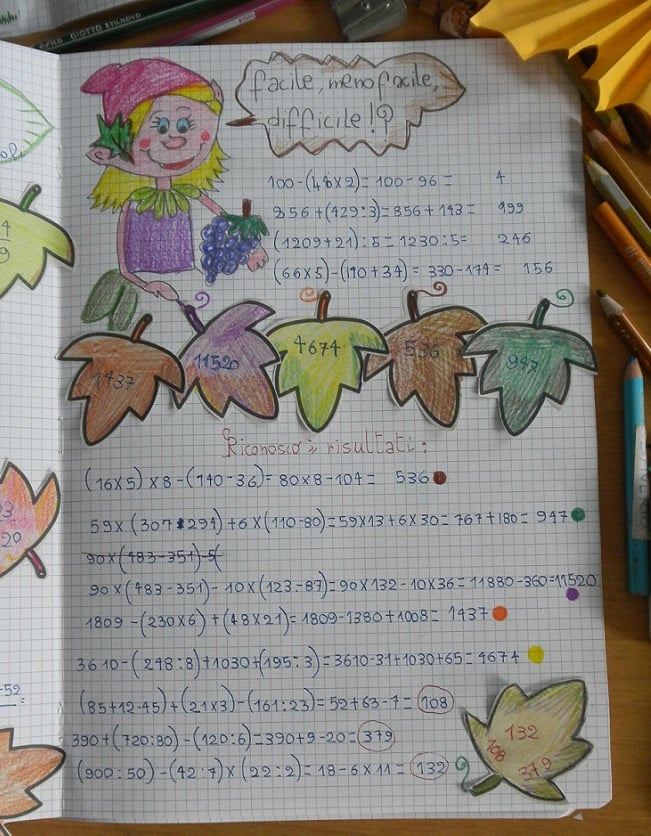 GIOTTO STILNOVO
facile, meno facile,
difficile!?
100-(48×2)=100-96= 4
856+(429:3)=856+143= 999
(1209+21):5=1230:5= 246
(66×5)-(140+34)=330-174= 156
4
9
1437
11520
4674
536
947
Riconosco i risultati:
(16×5)×8-(140-36)=80×8-104= 536
59×(307-294)+6×(110-80)=59×13+6×30=767+180=947
90×(483-351)-5(
90×(483-351)-10×(123-87)=90×132-10×36=11880-360=11520
1809-(230×6)+(48×21)=1809-1380+1008=1437
3610-(248:8)+1030+(195:3)=3610-31+1030+65=4674
(85+12-45)+(21×3)-(161:23)=52+63-7=108
390+(720:80)-(120:6)=390+9-20=379
(900:50)-(42:7)×(22:2)=18-6×11=132
132
108
379
20
-52